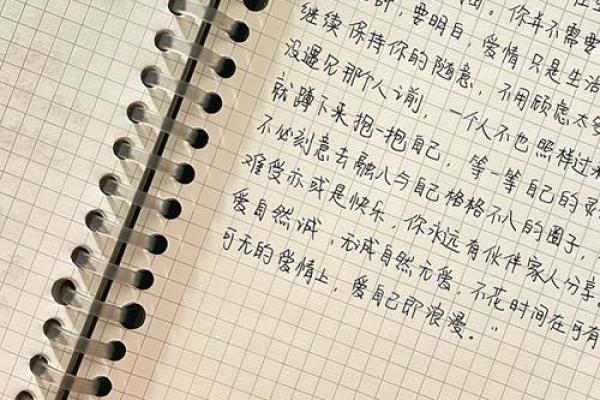 要明白，爱情只是生活
继续保持你的随意，不用顾虑太多
没遇见那个人之前，一个人不也照样过来
就蹲下来抱一抱自己，等一等自己的
不必刻意去融入与自己格格不入的圈子，
难受亦或是快乐，你永远有伙伴家人分享。
爱自然诚，无诚自然无爱，不花时间在可有
可无的爱情上，爱自己即浪漫。”